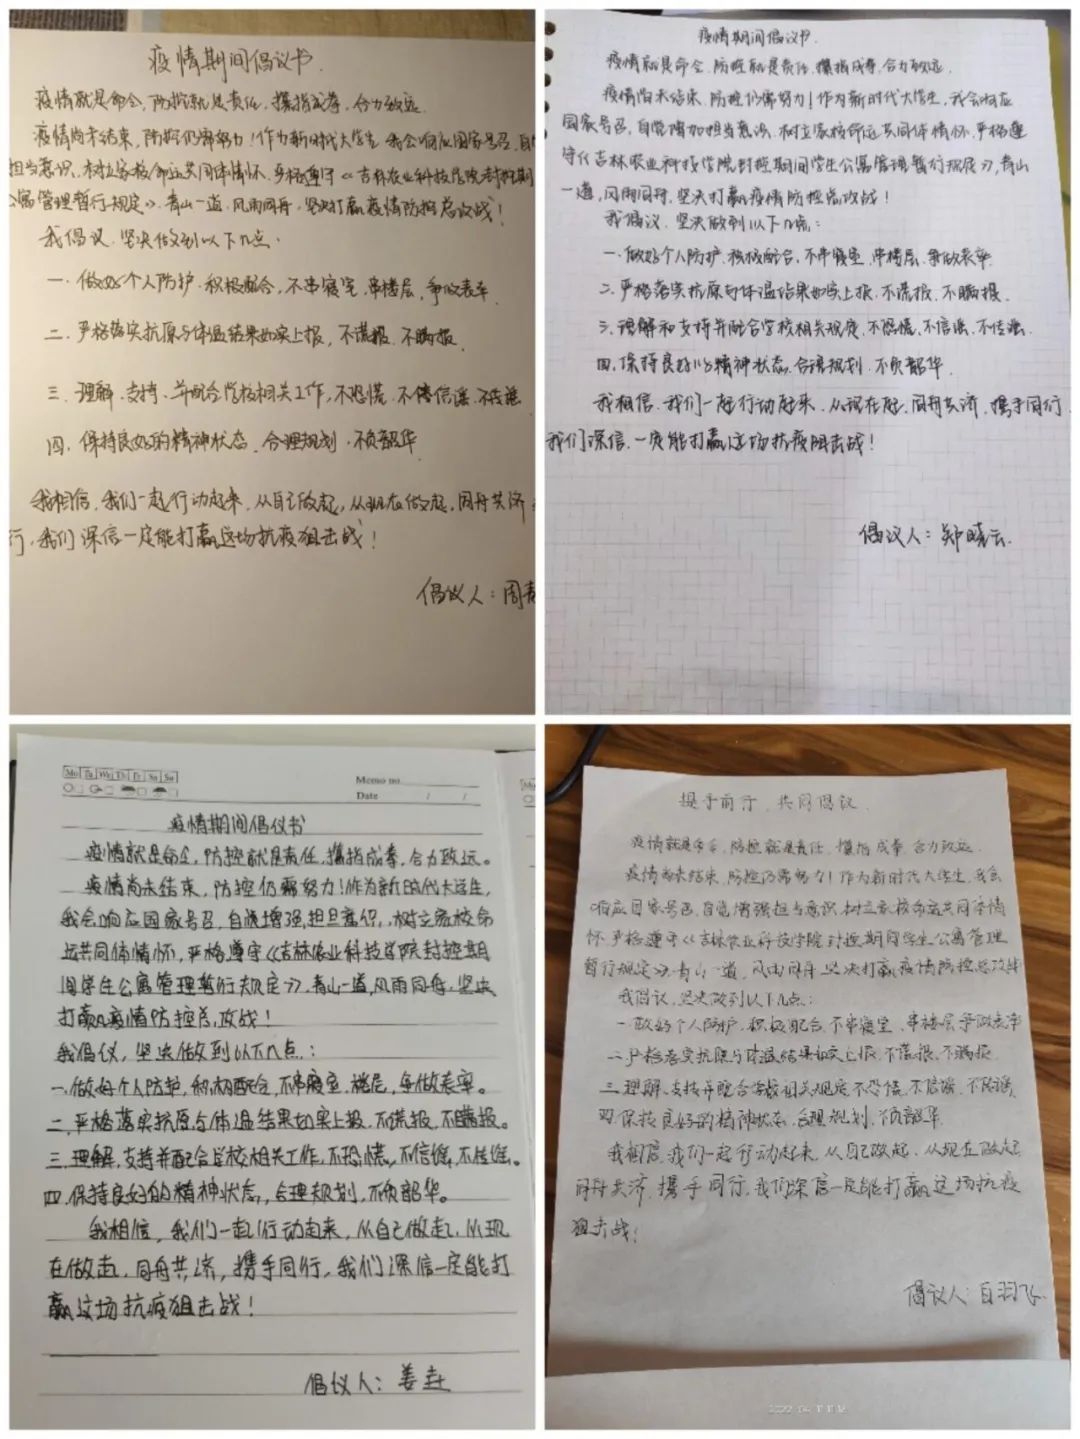 疫情期间倡议书
疫情就是命令,防控就是责任,攥指成拳,合力致远
疫情尚未结束,防控仍需努力!作为新时代大学生,我会响应国家号召,自
担当意识,树立家校命运共同体情怀,严格遵守《吉林农业科技学院封控期
公寓管理暂行规定》,青山一道,风雨同舟,坚决打赢疫情防控总攻战!
我倡议,坚决做到以下几点:
一、做好个人防护,积极配合,不串寝室,串楼层,争做表率
二、严格落实抗原与体温结果如实上报,不谎报,不瞒报.
三、理解、支持、并配合学校相关工作,不恐慌,不信谣,不传谣
四、保持良好的精神状态,合理规划,不负韶华
我相信,我们一起行动起来,从自己做起,从现在做起,同舟共济
行,我们深信一定能打赢这场抗疫狙击战!
倡议人:周
疫情期间倡议书.
疫情就是命令,防控就是责任,攥指成拳,合力致远.
疫情尚未结束,防控仍需努力!作为新时代大学生,我会响应
国家号召,自觉增加担当意识,树立家校命运共同体情怀,严格遵
守《吉林农业科技学院封控期间学生公寓管理暂行规定》,青山
一道,风雨同舟,坚决打赢疫情防控总攻战!
我倡议,坚决做到以下几点:
一、做好个人防护,积极配合,不串寝室,串楼层,争做表率
二、严格落实抗原与体温结果如实上报,不谎报,不瞒报.
三、理解和支持并配合学校相关规定,不恐慌,不信谣,不传谣.
四、保持良好心精神状态,合理规划,不负韶华
我相信,我们一起行动起来,从现在起,同舟共济,携手同行,
我们深信,一定能打赢这场抗疫阻击战!
倡议人:郑晓云.
Mo Tu We Th Fr Sa Su
Memo no.
Date / /
疫情期间倡议书
疫情就是命令,防控就是责任,攥指成拳,合力致远。
疫情尚未结束,防控仍需努力!作为新时代大学生,
我会响应国家号召,自觉增强,担当意识,树立家校命
运共同体情怀,严格遵守《吉林农业科技学院封控期
间学生公寓管理暂行规定》,青山一道,风雨同舟,坚决
打赢疫情防控总攻战!
我倡议,坚决做到以下几点:
一、做好个人防护,积极配合,不串寝室、楼层,争做表率。
二、严格落实抗原与体温结果如实上报,不谎报,不瞒报。
三、理解,支持并配合学校相关工作,不恐慌,不信谣,不传谣。
四、保持良好的精神状态,合理规划,不负韶华。
我相信,我们一起行动起来,从自己做起,从现
在做起,同舟共济,携手同行,我们深信一定能打
赢这场抗疫狙击战!
倡议人:姜垚
携手前行,共同倡议
疫情就是命令,防控就是责任,攥指成拳,合力致远.
疫情尚未结束,防控仍需努力!作为新时代大学生,我会
响应国家号召,自觉增强担当意识,树立家校命运共同体情
怀,严格遵守《吉林农业科技学院封控期间学生公寓管理
暂行规定》,青山一道,风雨同舟,坚决打赢疫情防控总攻战
我倡议,坚决做到以下几点:
一、做好个人防护,积极配合,不串寝室、串楼层,争做表率
二、严格落实抗原与体温结果如实上报,不谎报,不瞒报
三、理解、支持并配合学校相关规定,不恐慌,不信谣,不传谣,
四、保持良好的精神状态,合理规划,不负韶华
我相信,我们一起行动起来,从自己做起,从现在做起
同舟共济,携手同行,我们深信一定能打赢这场抗疫
狙击战!
倡议人:白羽飞.